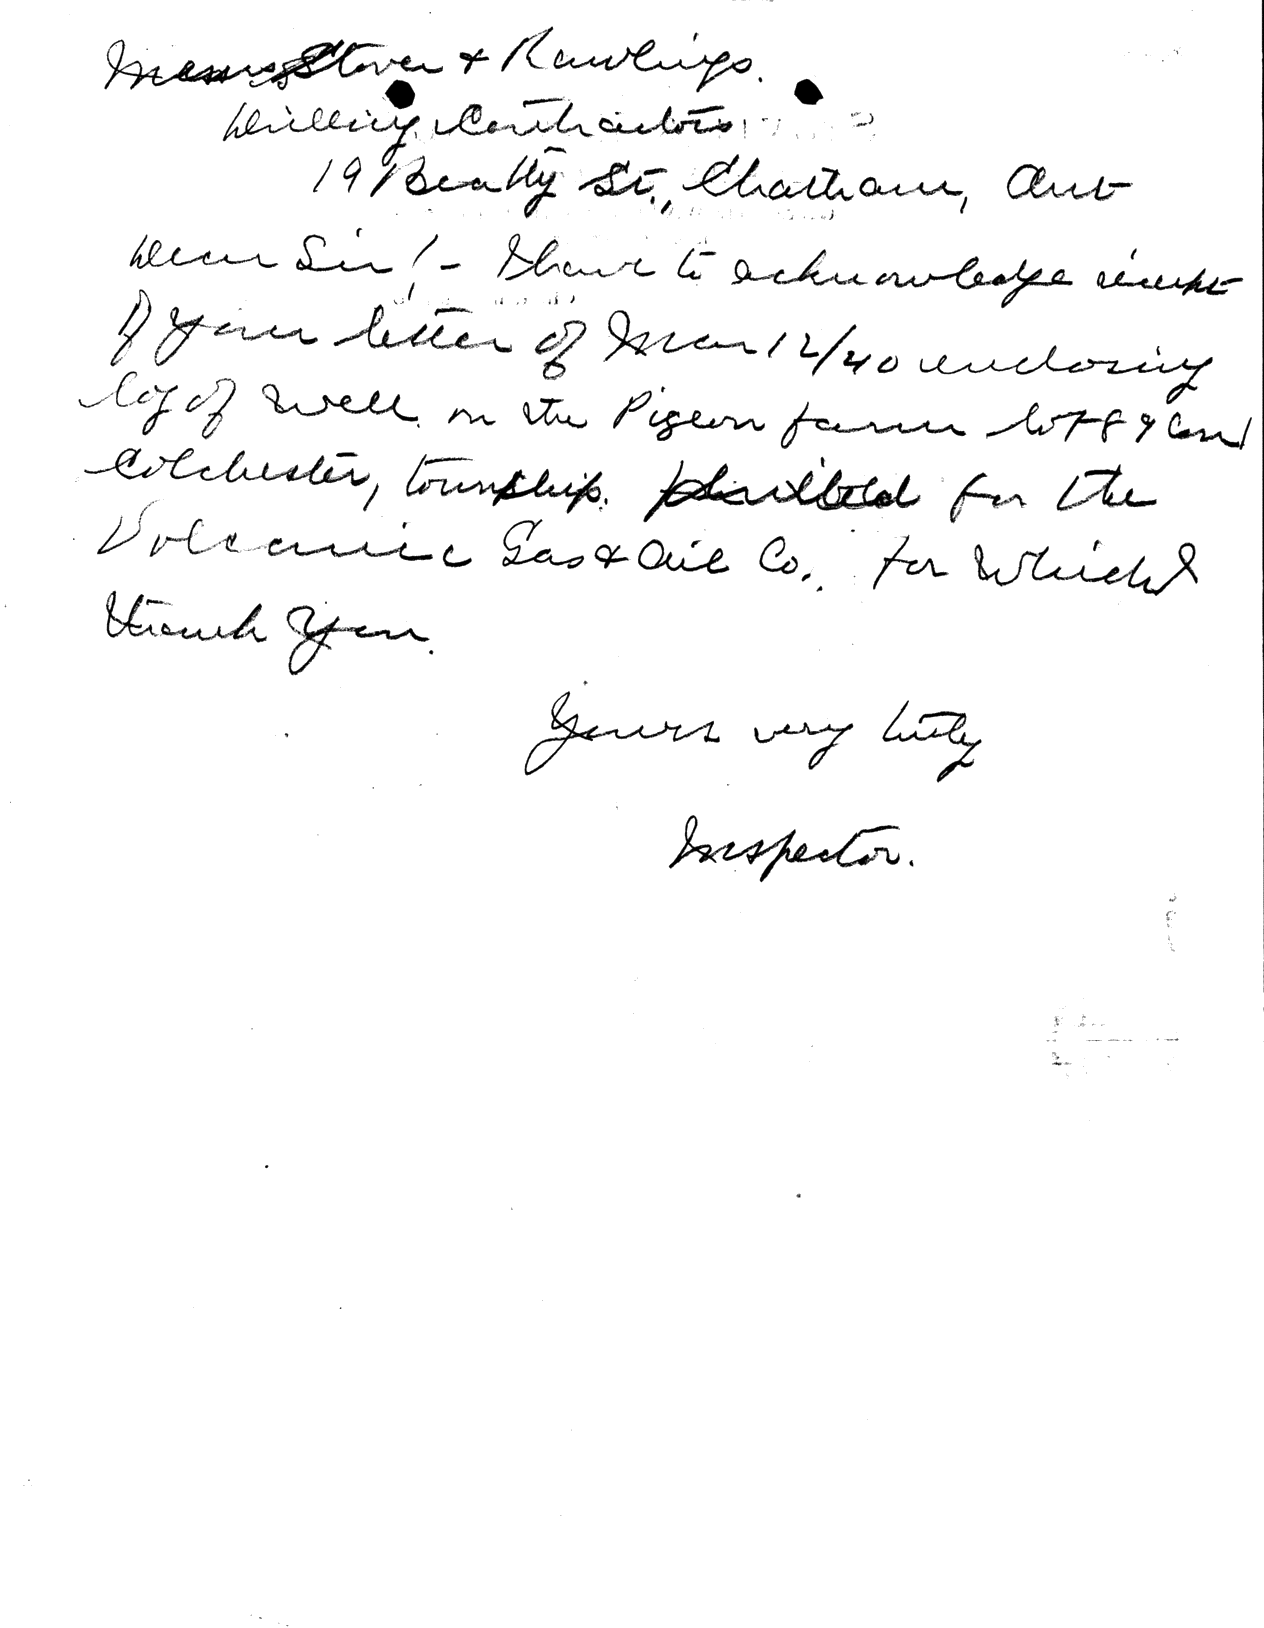 Messrs Stover & Rawlings.
Drilling Contractors
19 Beatty St., Chatham, Ont
Dear Sir!- I have to acknowledge receipt
of your letter of Mar 12/40 enclosing
log of well on the Pigeon farm lot 89 Con 1
Colchester, township. drilled for the
Volcanic Gas & Oil Co., for which I
thank you.
Yours very truly
Inspector.